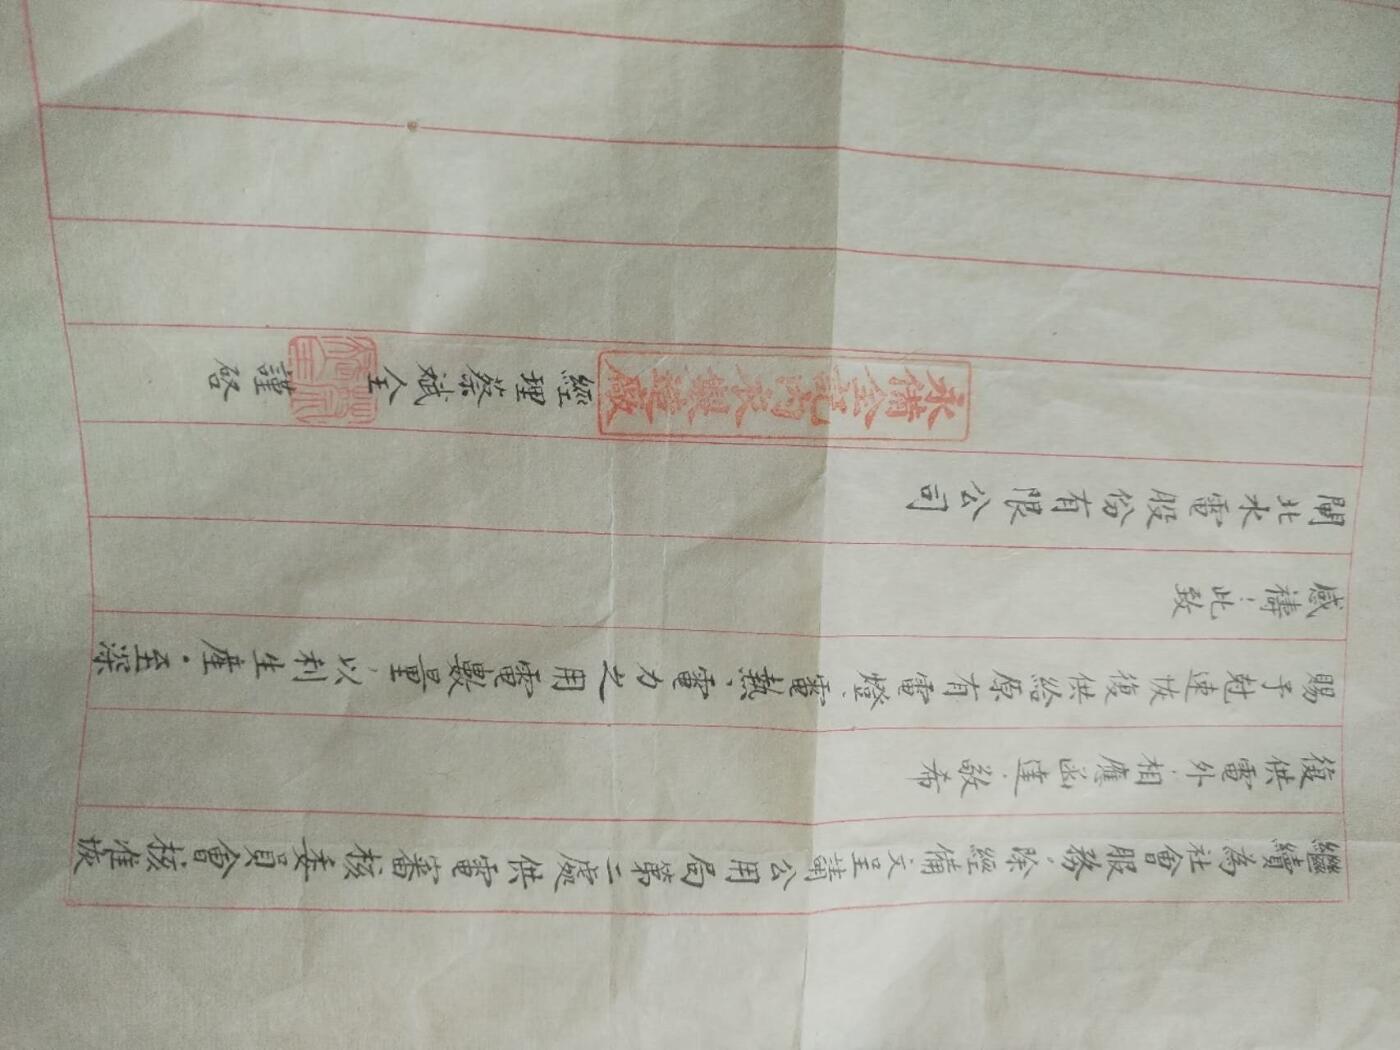 繼續為社會服務，除經備文呈請公用局第二處供電審核委員會核准恢
復供電外，相應函達，敬希
賜予尅速恢復供給原有電燈、電熱、電力之用電數量，以利生產。至深
感禱！此致
閘北水電股份有限公司
永備金記內衣製造廠 經理蔡斌全 謹啓